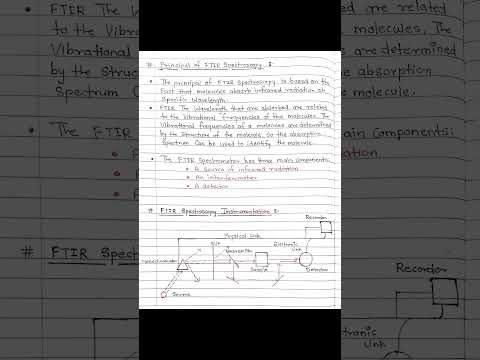 • FTIR
are related
to the Vibra
molecules. The
Vibrational
are determined
by the Struc
absorption
Spectrum C
molecule.
• The
main Components:
# FTIR Spect
Recorder
# Principal of FTIR Spectroscopy :
• The principal of FTIR Spectroscopy is based on the
fact that molecules absorb infrared radiation at
Specific Wavelength.
• FTIR The Wavelength that are absorbed are related
to the Vibrational frequencies of the molecules. The
Vibrational frequencies of a molecule are determined
by the Structure of the molecule, So the absorption
Spectrum Can be used to identify the molecule.
• The FTIR Spectrometer has three main components:
• A Source of infrared radiation
• An interferometer
• A detector
# FTIR Spectroscopy Instrumentation :
Recorder
Physical Link
Slit
Electronic
link
Sample
Detector
Source